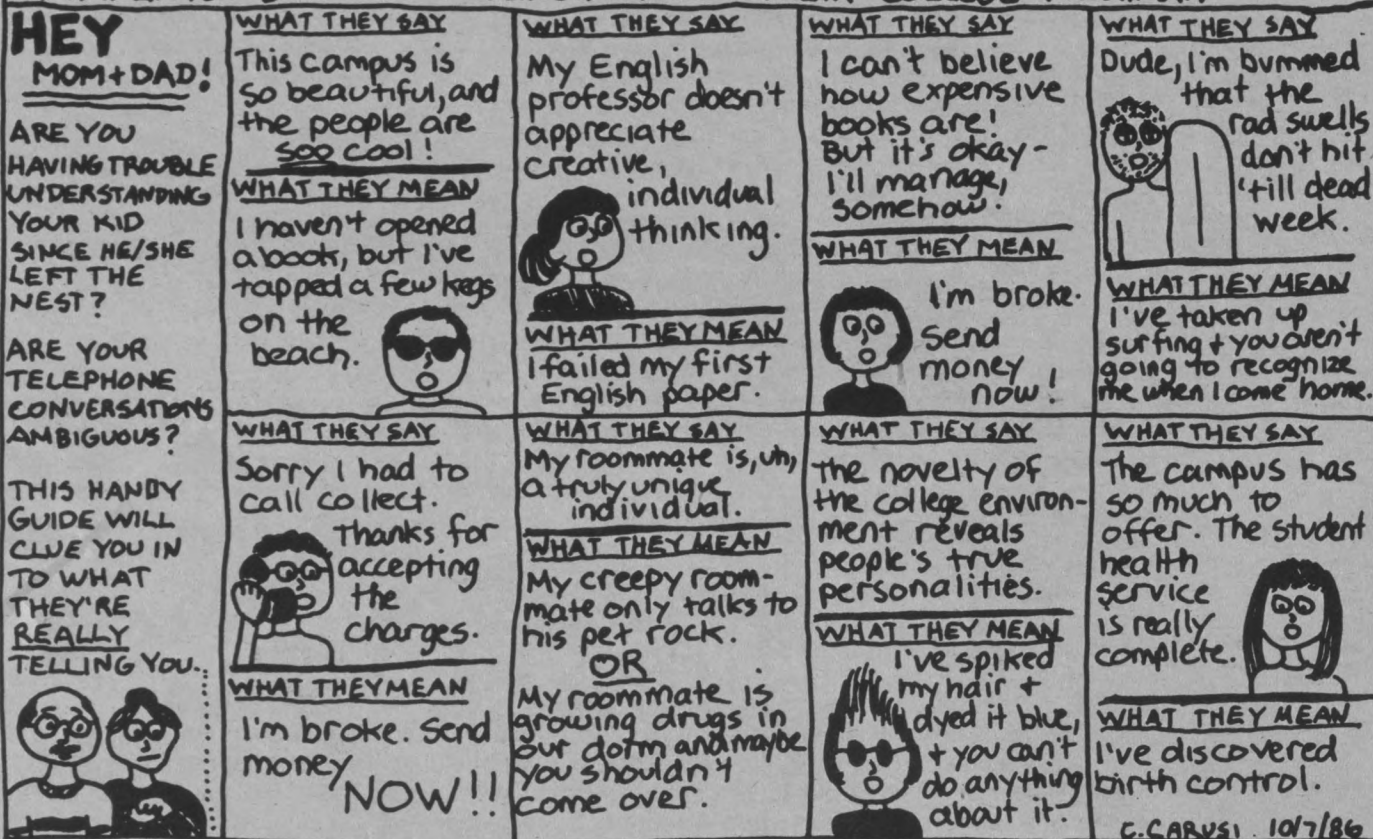 COLLEGE
HEY
MOM+DAD!
ARE YOU
HAVING TROUBLE
UNDERSTANDING
YOUR KID
SINCE HE/SHE
LEFT THE
NEST?
ARE YOUR
TELEPHONE
CONVERSATIONS
AMBIGUOUS?
THIS HANDY
GUIDE WILL
CLUE YOU IN
TO WHAT
THEY'RE
REALLY
TELLING YOU..
WHAT THEY SAY
This campus is
so beautiful, and
the people are
soo cool!
WHAT THEY MEAN
I haven't opened
a book, but I've
tapped a few kegs
on the
beach.
WHAT THEY SAY
My English
professor doesn't
appreciate
creative,
individual
thinking.
WHAT THEY MEAN
I failed my first
English paper.
WHAT THEY SAY
I can't believe
how expensive
books are!
But it's okay-
I'll manage,
somehow.
WHAT THEY MEAN
I'm broke.
send
money
now!
WHAT THEY SAY
Dude, I'm bummed
that the
rad swells
don't hit
'till dead
week.
WHAT THEY MEAN
I've taken up
surfing + you aren't
going to recognize
me when I come home.
WHAT THEY SAY
Sorry I had to
call collect.
Thanks for
accepting
the
charges.
WHAT THEY MEAN
I'm broke. Send
money
NOW!!
WHAT THEY SAY
My roommate is, uh,
a truly unique
individual.
WHAT THEY MEAN
My creepy room-
mate only talks to
his pet rock.
OR
My roommate is
growing drugs in
our dorm and maybe
you shouldn't
come over.
WHAT THEY SAY
The novelty of
the college environ-
ment reveals
people's true
personalities.
WHAT THEY MEAN
I've spiked
my hair +
dyed it blue,
+ you can't
do anything
about it.
WHAT THEY SAY
The campus has
so much to
offer. The student
health
service
is really
complete.
WHAT THEY MEAN
I've discovered
birth control.
C. CARUSI 10/7/86